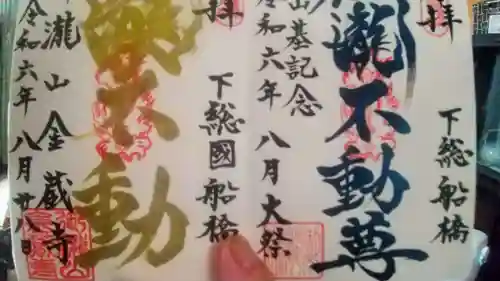 拝
下総船橋
瀧不動尊
山基記念
令和六年 八月大祭
拝
下総國船橋
不動
瀧山金蔵寺
令和六年八月廿八日